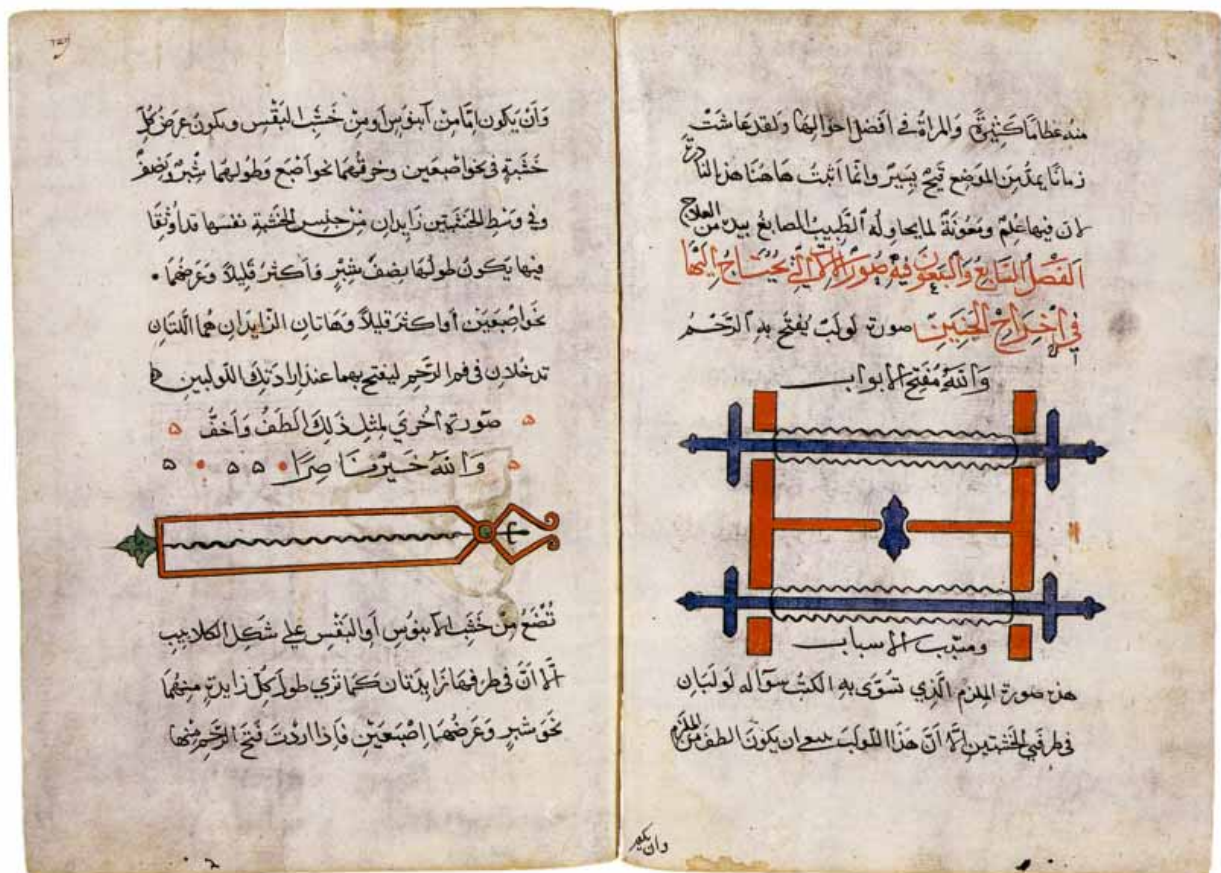 منه عظاما كثيرة والمراة في افضل احوالها ولقد عاشت
زمانا يمد من الموضع قيح يسير وانما اثبت هاهنا هذه النادرة
لان فيها علم ومعونة لما يحاوله الطبيب الصانع بيده من العلاج
الفصل السابع والسبعون في صور الات التي يحتاج اليها
في اخراج الجنين صورة لولب يفتح به الرحم
والله مفتح الابواب
ومسبب الاسباب
هذه صورة الملزم الذي تسوى به الكتب سوا له لولبان
في طرفي الخشبتين الا ان هذا اللولب ان يكون الطف من الملزم
وان يكون
وَأَنْ يكون إمّا من آبنوس أو من خشب البقس ويكون عرض كل
خشبة في نحو اصبعين وحرفهما نحو اصبع وطولهما شبر ونصف
وفي وسط الخشبتين زايدان من جنس الخشبة نفسها قد أوثقا
فيها يكون طولها نصف شبر وأكثر قليلا وعرضهما
نحو اصبعين أو اكثر قليلا وهاتان الزايدان هما اللتان
تدخلان في فم الرحم ليفتح بهما عند ادارتك اللولبين
صورة أخرى لمثل ذلك ألطف وأخف
والله خير ناصرا
تصنع من خشب الآبنوس أو البقس على شكل الكلاليب
الا انّ في طرفها زايدتان كما ترى طول كل زايدة منهما
نحو شبر وعرضهما اصبعين فاذا اردت فتح الرحم منها